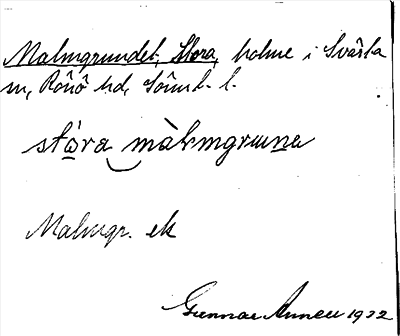 Malmgrundet, Stora, holme i Svärta
sn, Rönö hd, Söml. l.
stóra màlmgruna
Malmgr. ek
Gunnar 1932